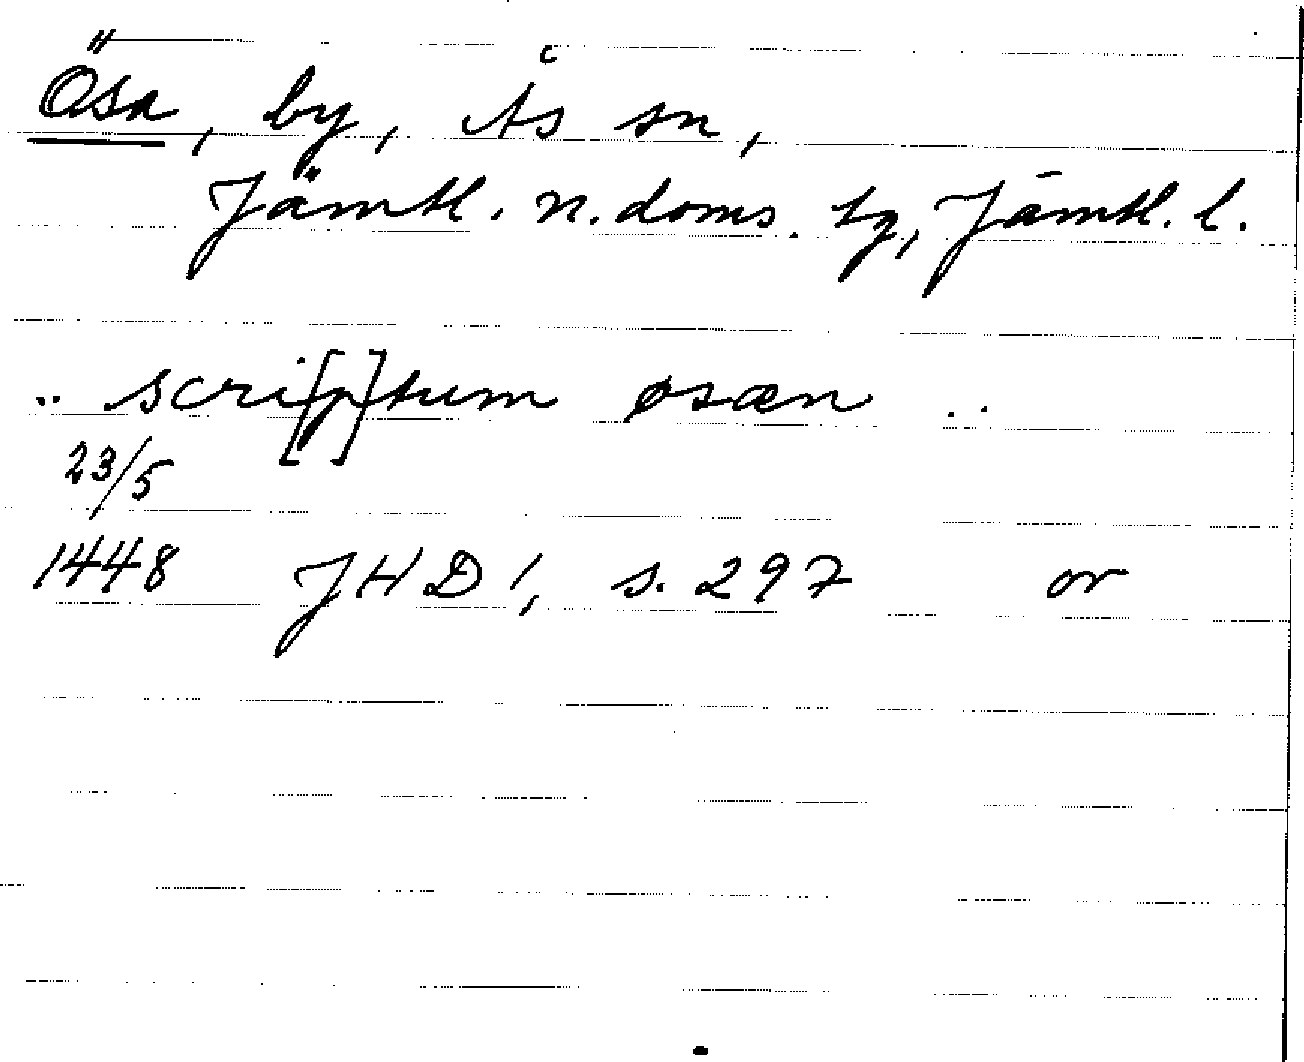 Ösa, by, Ås sn,
Jämtl. n. doms. tg, Jämtl. l.
.. scri[p]tum øsæn ..
23/5
1448 JHD 1, s. 297 or